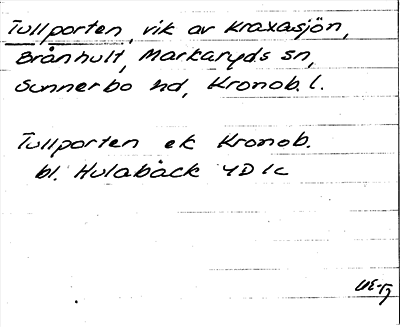 Tullporten, vik av Kraxasjön,
Brånhult, Markaryds sn,
Sunnerbo hd, Kronob. l.
Tullporten ek Kronob.
bl. Hulabäck 4D1c